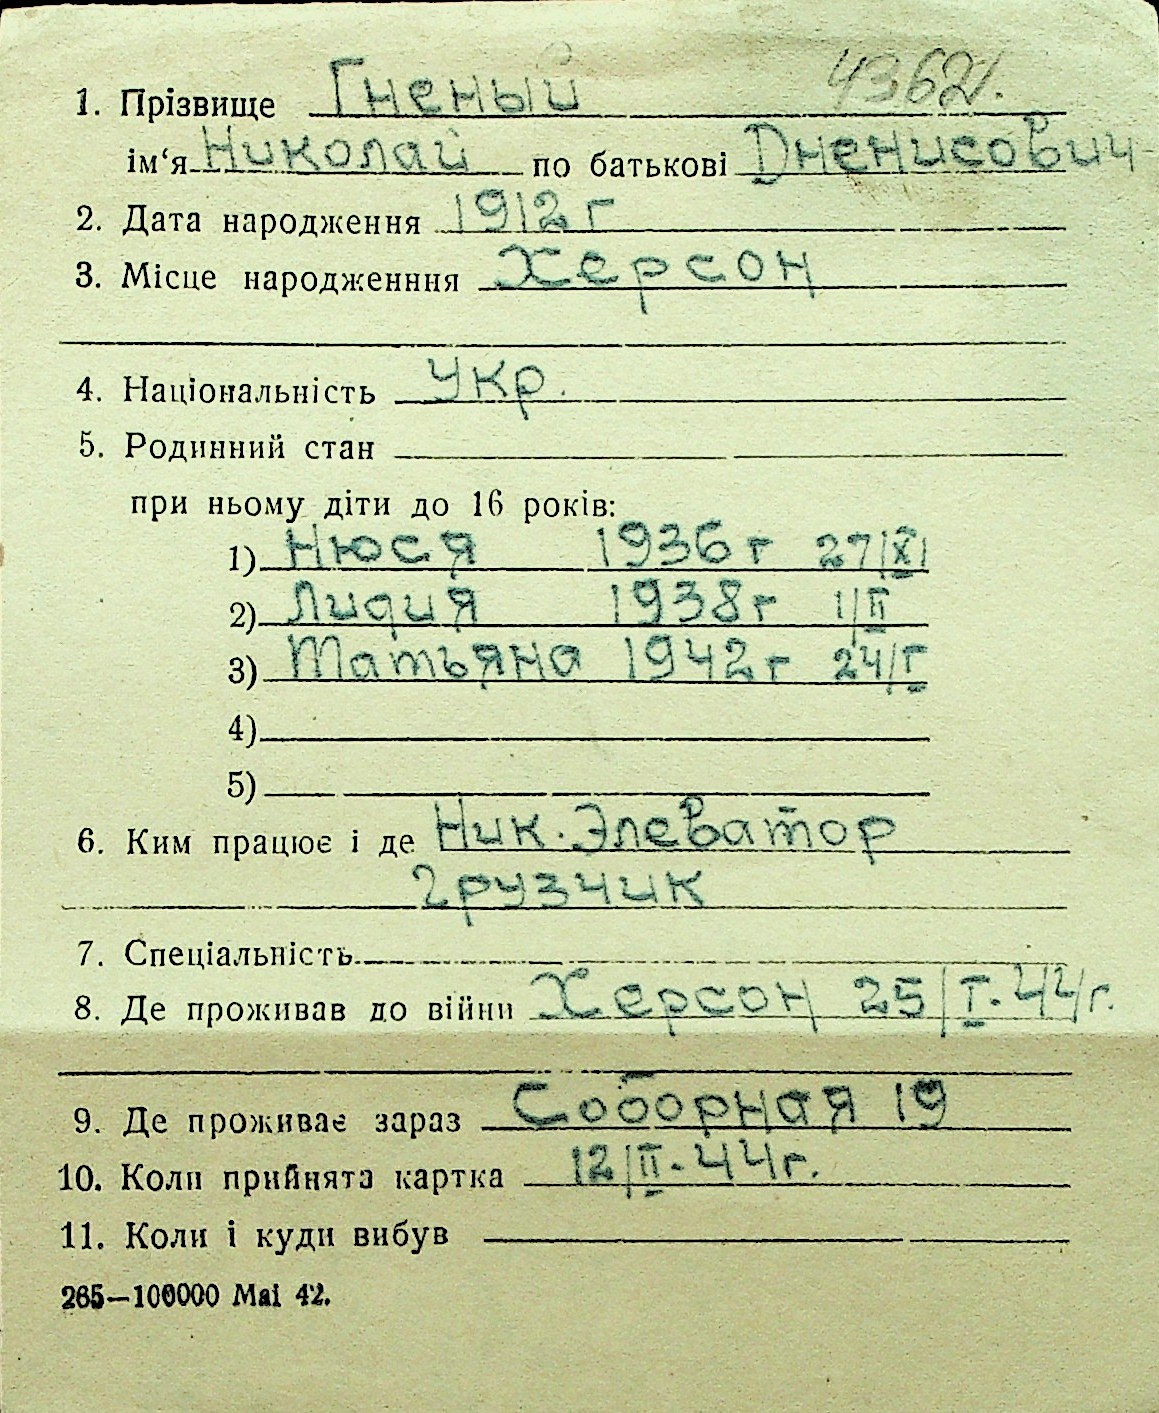 4362
1. Прізвище Гненый
ім‘я Николай по батькові Дненисович
2. Дата народження 1912 г
3. Місце народженння Херсон
4. Національність Укр.
5. Родинний стан
при ньому діти до 16 років:
1) Нюся 1936 г 27/XI
2) Лидия 1938 г 1/II
3) Татьяна 1942 г 24/I
4)
5)
6. Ким працює і де Ник. Элеватор
грузчик
7. Спеціальність
8. Де проживав до війни Херсон 25/I. 44 г.
9. Де проживає зараз Соборная 19
10. Коли прийнята картка 12/II. 44 г.
11. Коли і куди вибув
265—100000 Mai 42.